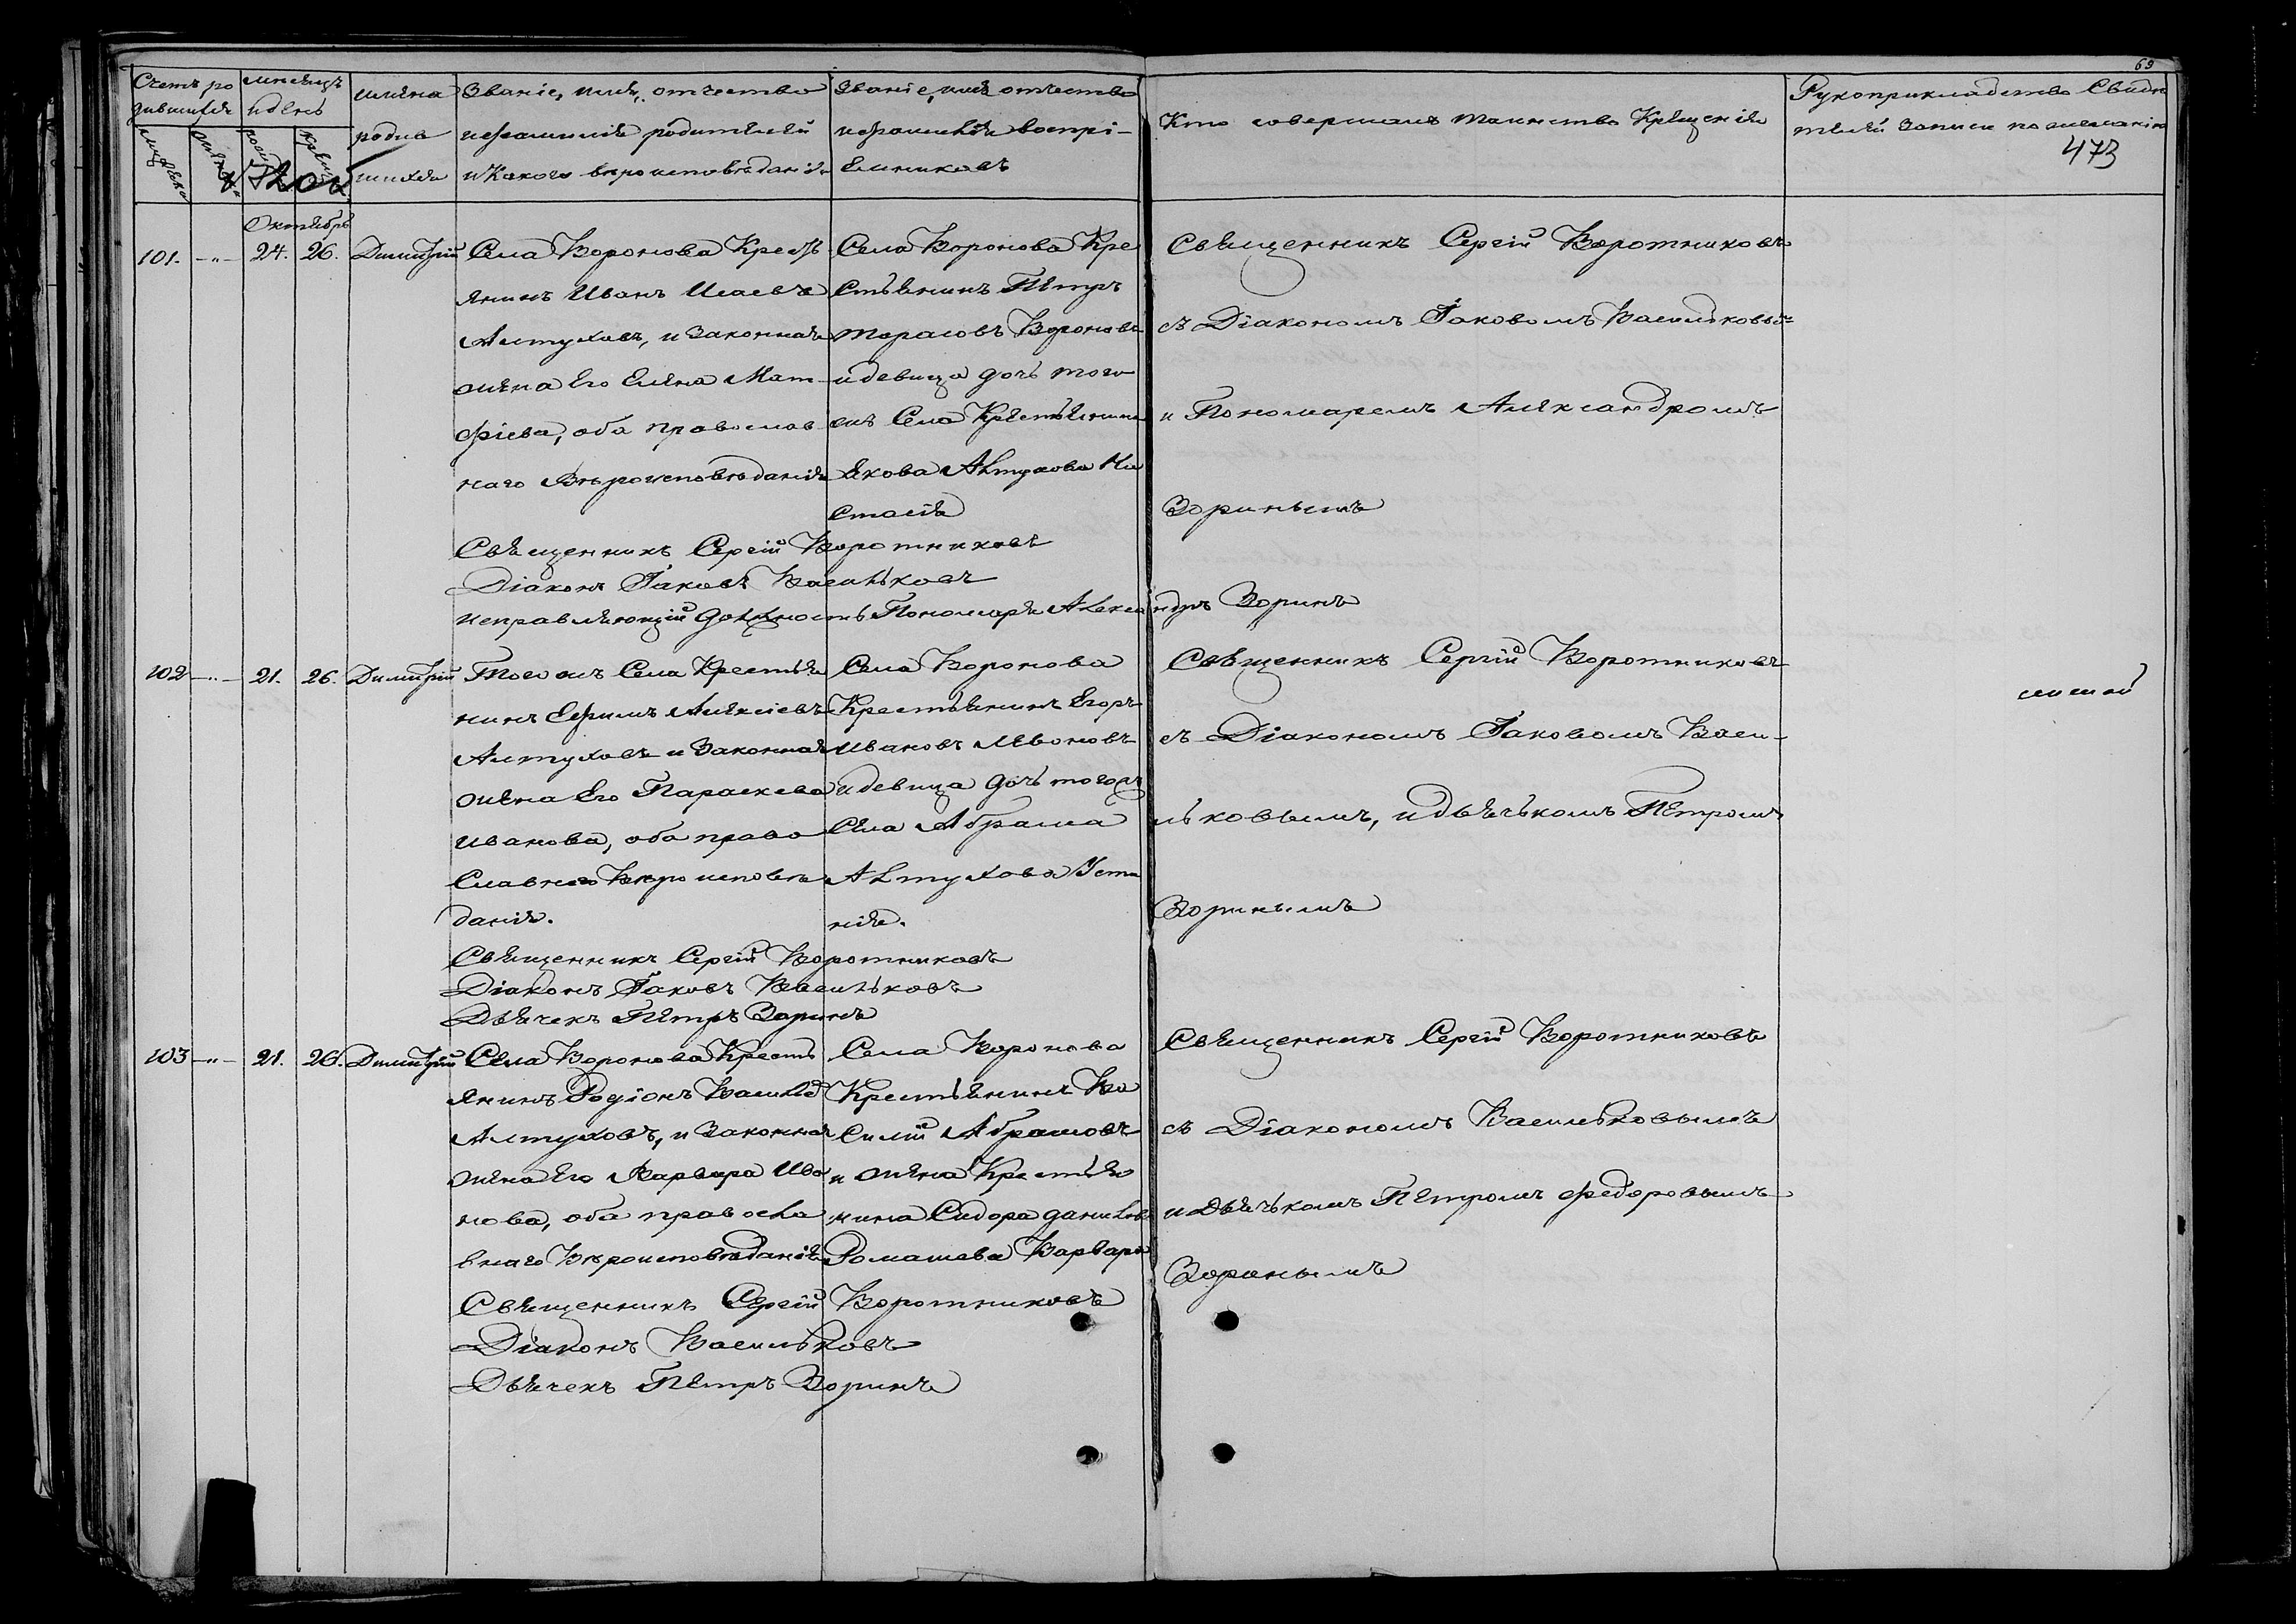 69
Счетъ ро
дившихся
мѣсяцъ
и день
имена
родив
шихся
Званіе, имя, отчество
и фамилія родителей
и какого вѣроисповѣданія
Званіе, имя отчество
и фамилія воспрі-
емниковъ
Кто совершалъ таинство Крещенія
Рукоприкладство Свидѣ
телей записи по желанію
473
Октябрь
101. -"- 24. 26. Димитрій
Села Воронова Кресть
янинъ Иванъ Исаевъ
Алтуховъ, и законная
жена Его Елена Мат-
фіева, оба православ
наго Вѣроисповѣданія
Села Воронова Кре
стьянинъ Петръ
Тарасовъ Вороновъ
и девица дочь того
жъ Села Крестьянина
Якова Алтухова На
стасія
Священникъ Сергій Воротниковъ
съ Діакономъ Іаковомъ Васильковы
и Пономаремъ Александромъ
Зоринымъ
Священникъ Сергій Воротниковъ
Діаконъ Іаковъ Васильковъ
исправляющій должность Пономаря Александръ Зоринъ
102 -"- 21. 26. Димитрій
Того жъ Села Крестья
нинъ Ефимъ Алексіевъ
Алтуховъ и законная
жена Его Параскева
Иванова, оба право
славнаго Вѣроисповѣ
данія.
Села Воронова
Крестьянинъ Егоръ
Ивановъ Левоновъ
и девица дочь того жъ
Села Абрама
Алтухова Усти
нія.
Священникъ Сергій Воротниковъ
съ Діакономъ Іаковомъ Васи-
льковымъ, и дьячькомъ Петромъ
Зоринымъ
Священникъ Сергій Воротниковъ
Діаконъ Іаковъ Васильковъ
Дьячекъ Петръ Зоринъ
103 -"- 21. 26. Димитрій
Села Воронова Кресть
янинъ Родіонъ Василье
Алтуховъ, и законная
жена Его Варвара Ива
нова, оба правосла
внаго Вѣроисповѣданія
Села Воронова
Крестьянинъ Ва
силій Абрамовъ
и жена Крестья
нина Сидора Данилова
Ромашева Варвара
Священникъ Сергій Воротниковъ
съ Діакономъ Васильковымъ
и Дьячькомъ Петромъ Федоровымъ
Зоринымъ
Священникъ Сергій Воротниковъ
Діаконъ Васильковъ
Дьячекъ Петръ Зоринъ